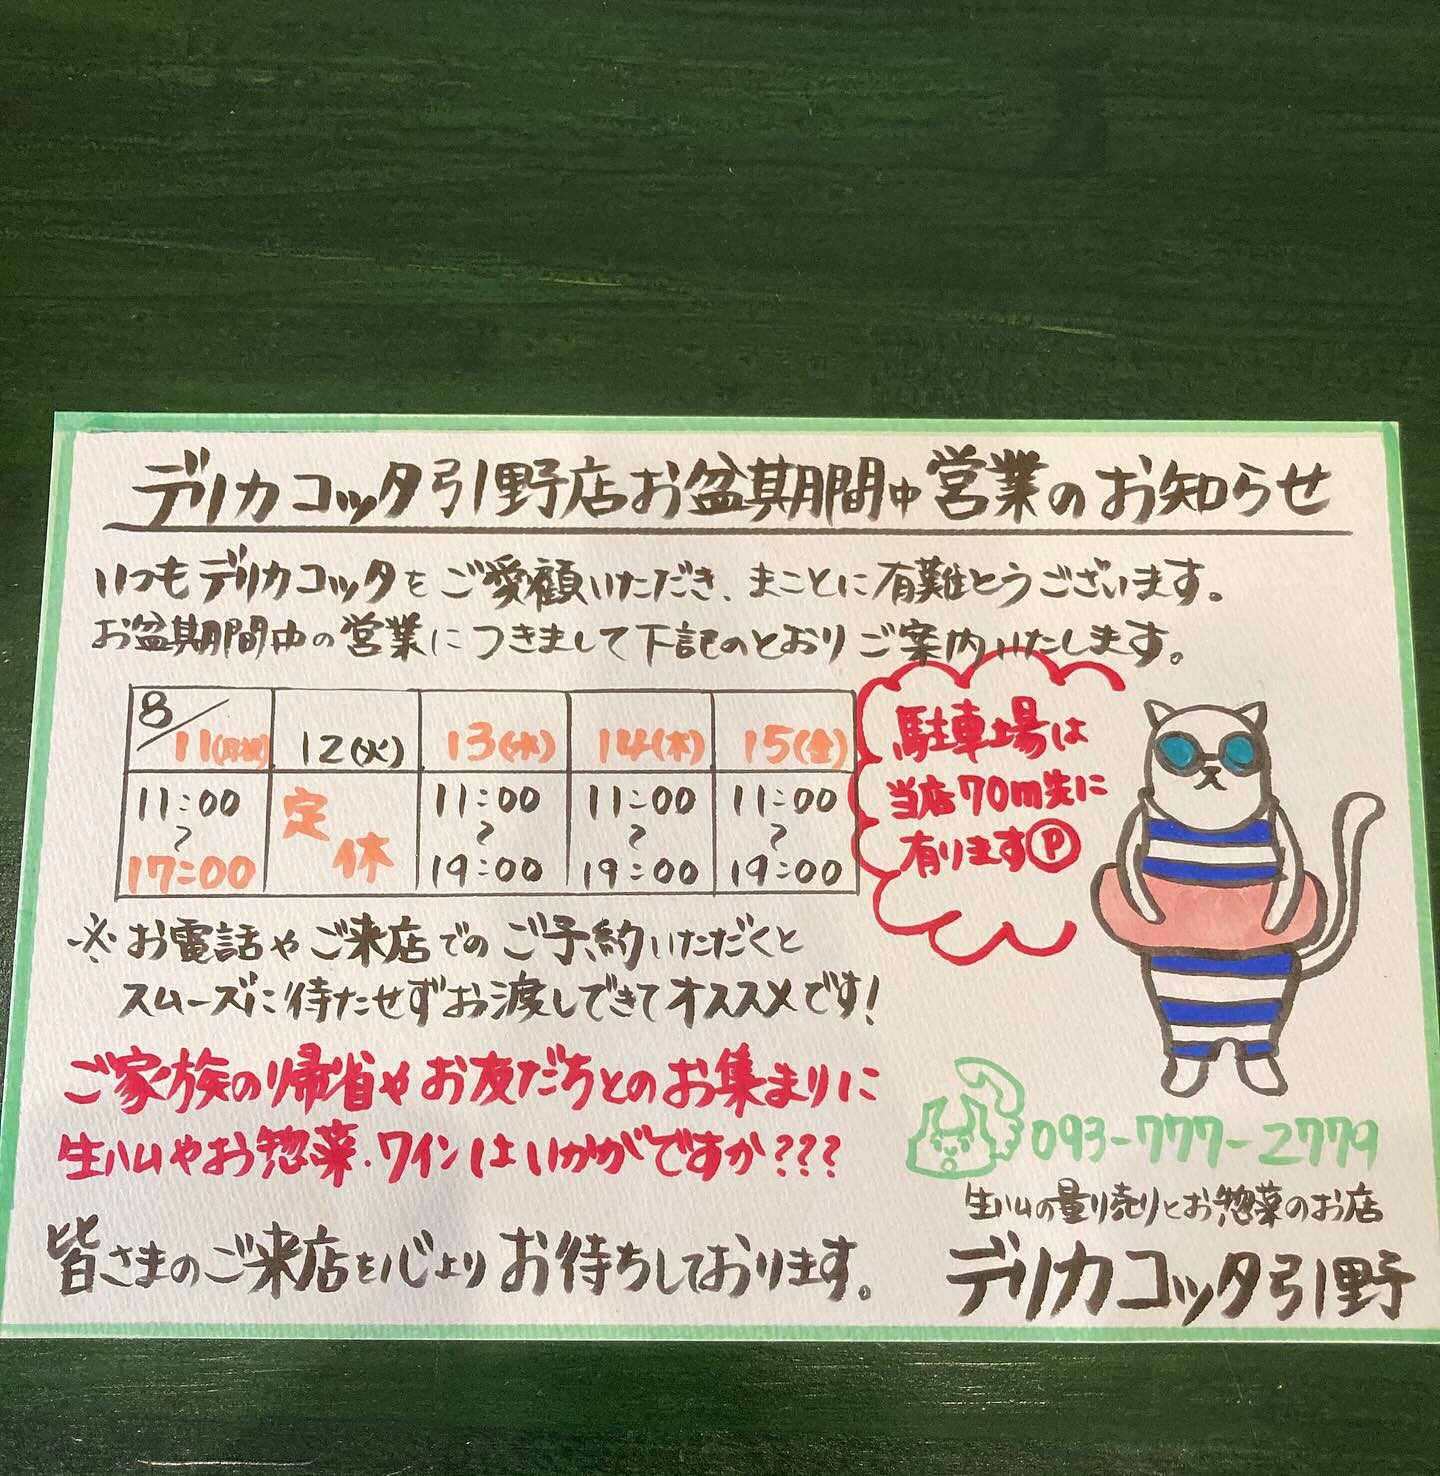 デリカコッタ引野店お盆期間中営業のお知らせ
いつもデリカコッタをご愛顧いただき、まことに有難とうございます。
お盆期間中の営業につきまして下記のとおりご案内いたします。
8/11(月祝) 12(火) 13(水) 14(木) 15(金)
11:00〜17:00 定休 11:00〜19:00 11:00〜19:00 11:00〜19:00
駐車場は
当店70m先に
有りますⓅ
※お電話やご来店でのご予約いただくと
スムーズに待たせずお渡しできてオススメです!
ご家族の帰省やお友だちとのお集まりに
生ハムやお惣菜.ワインはいかがですか???
皆さまのご来店を心よりお待ちしております。
093-777-2779
生ハムの量り売りとお惣菜のお店
デリカコッタ引野